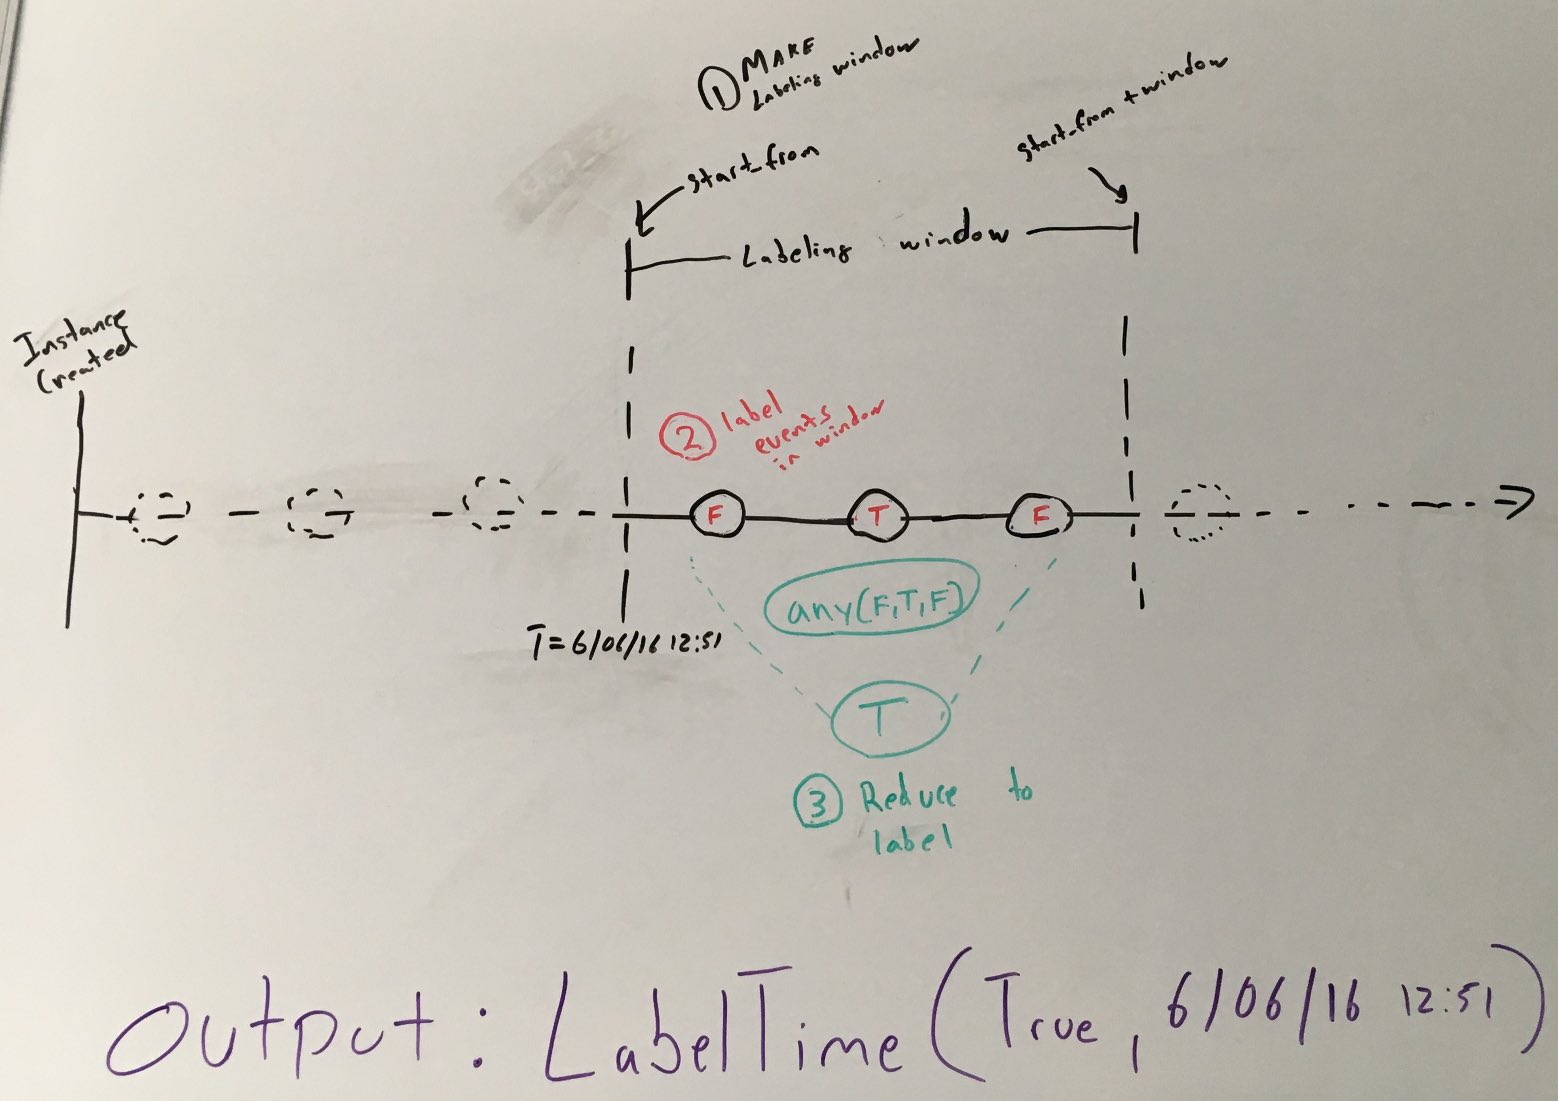 ① MAKE
Labeling window
start_from
start_from + window
Labeling window
Instance
Created
② label
events
in window
F
T
F
any(F,T,F)
T=6/06/16 12:51
T
③ Reduce to
label
Output: LabelTime(True, 6/06/16 12:51)